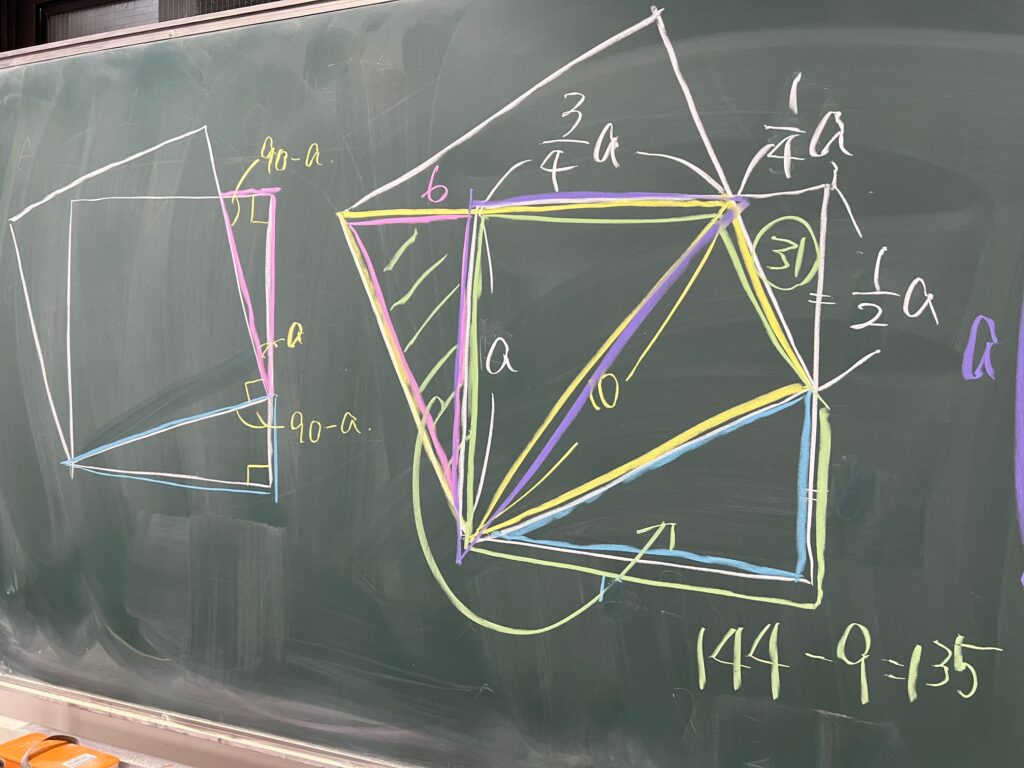 90-a.
a
90-a.
6
3/4 a
1/4 a
a
10
31
= 1/2 a
a
144-9=135